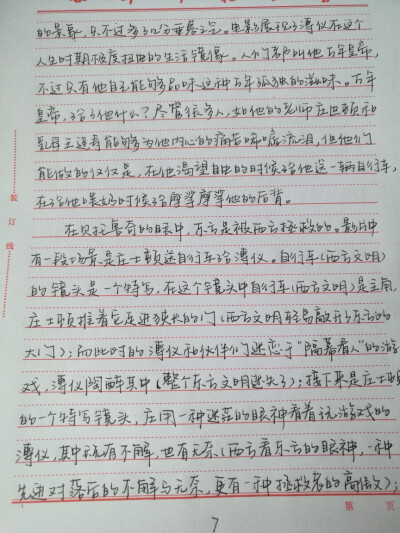 的景象,只不过多
人生时期极度扭曲的生活镜像。人们都叫他万年皇帝,
不过只有他自己能够品味这种万年孤独的滋味。万年
皇帝,给了他什么?尽管很多人,如他的老师庄士顿和
乳母王连寿能够为他内心的痛苦呜咽流泪,但他们
能做的仅仅是,在他渴望自由的时候给他送一辆自行车,
在给他喂奶时候给摩挲摩挲他的后背。
在贝托鲁奇的眼中,东方是被西方拯救的。影片中
有一段场景是庄士顿送自行车给溥仪。自行车(西方文明)
的镜头是一个特写,在这个镜头中自行车(西方文明)是主角,
庄士顿推着它走进狭长的门(西方文明轻易敲开了东方的
大门);而此时的溥仪和伙伴们迷恋于“隔幕看人”的游
戏,溥仪陶醉其中(整个东方文明迷失了);接下来是庄士顿
的一个特写镜头,庄用一种迷茫的眼神看着玩游戏的
溥仪,其中既有不解,也有无奈(西方看东方的眼神,一种
先进对落后的不解与无奈,更有一种拯救者的高傲);
装
订
线
第 页
7